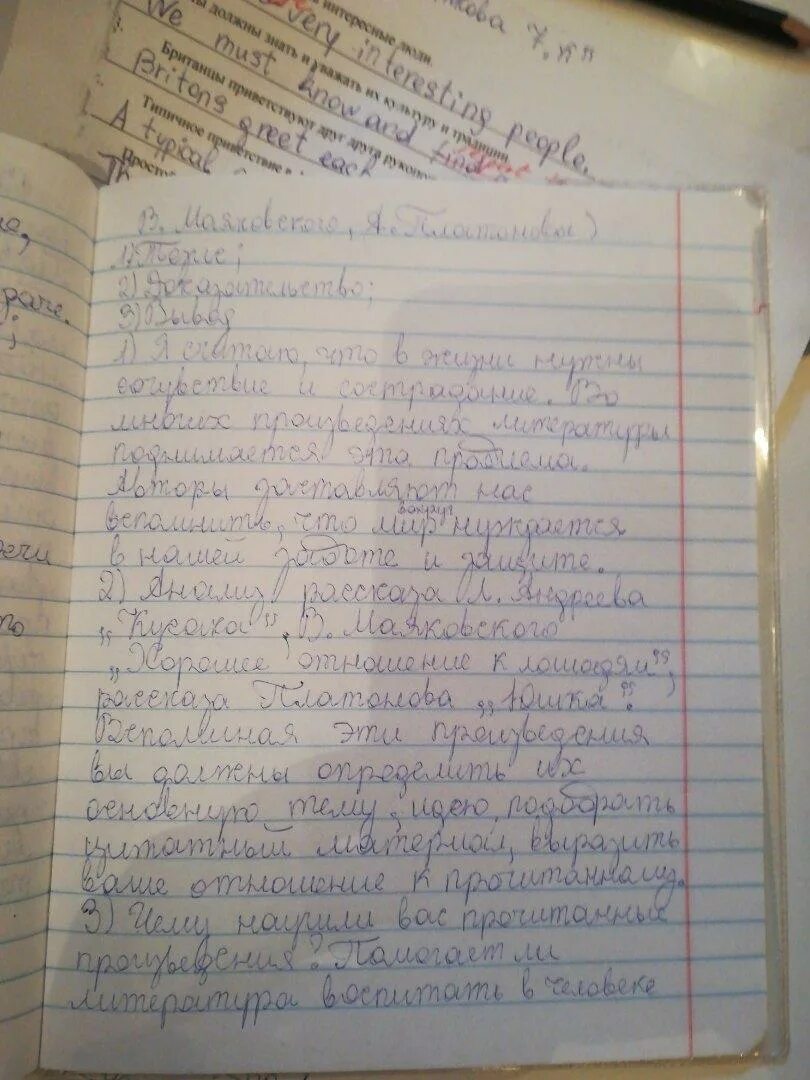 интересные люди.
кова 7.
very interesting people.
ны должны знать и уважать их культуру и традиции.
We must know and find
Британцы приветствуют друг друга рукопо
Britons greet each
Типичное приветствие в
A typical
Просто
Th
В. Маяковского, А. Платонова)
1) Тезис;
2) Доказательство;
3) Вывод
1) Я считаю, что в жизни нужны
сочувствие и сострадание. Во
многих произведениях литературы
поднимается эта проблема.
Авторы заставляют нас
вспомнить, что мир вокруг нуждается
в нашей заботе и защите.
2) Анализ рассказа Л. Андреева
„Кусака", В. Маяковского
„Хорошее отношение к лошадям",
рассказа Платонова „Юшка".
Вспоминая эти произведения
вы должны определить их
основную тему, идею, подобрать
цитатный материал, выразить
ваше отношение к прочитанному.
3) Чему научили вас прочитанные
произведения? Помогает ли
литература воспитать в человеке